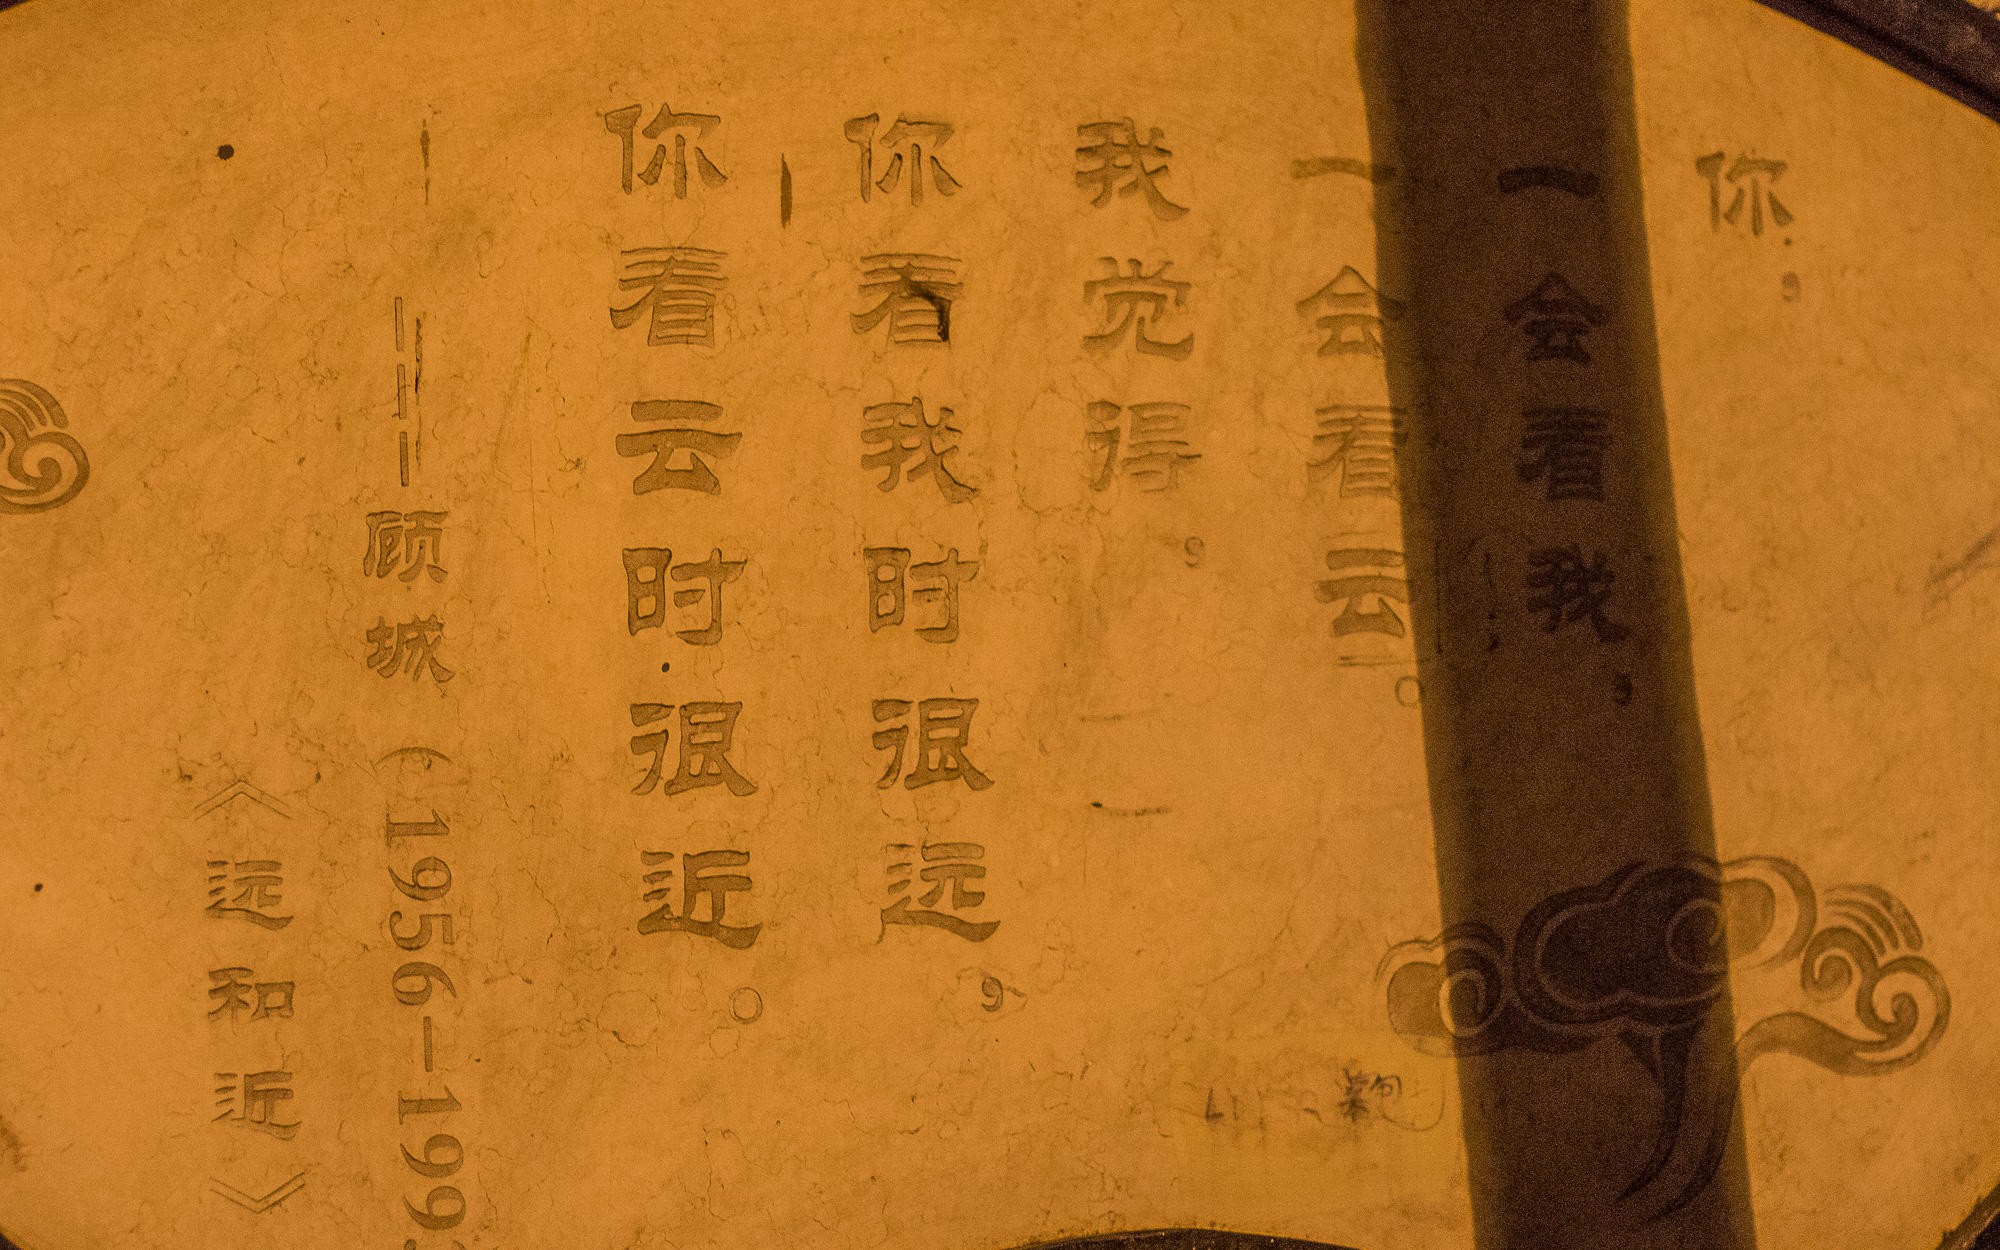 你，
一会看我，
一会看云。
我觉得，
你看我时很远，
你看云时很近。
———顾城（1956—199
《远和近》